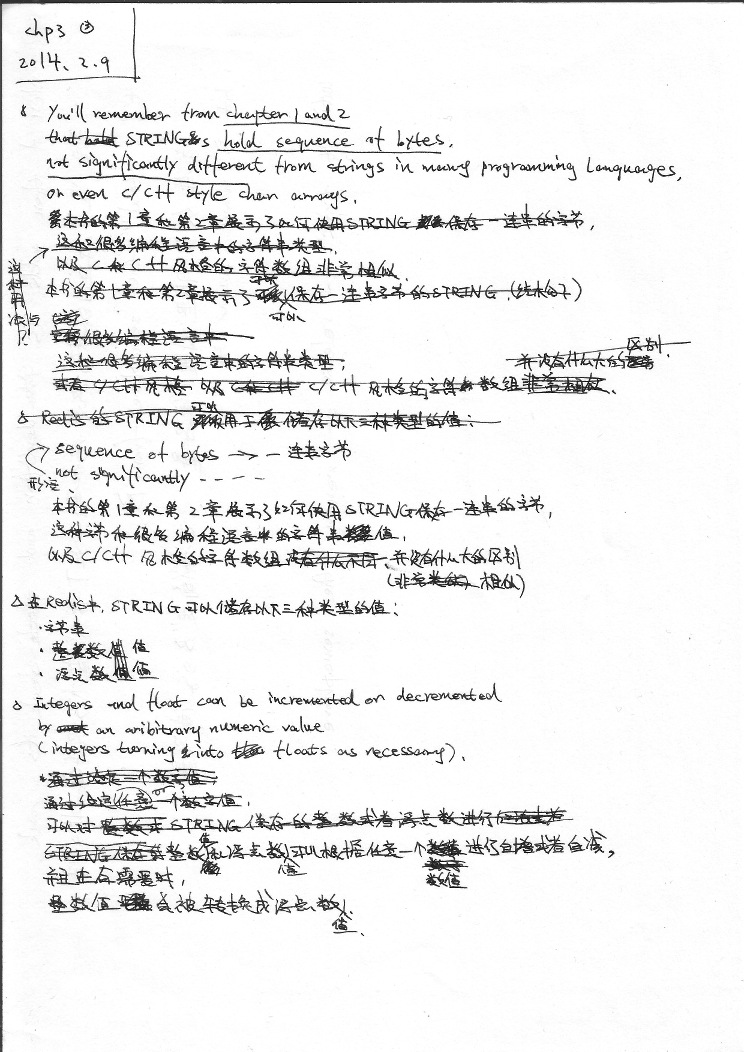 chp3 ③
2014.2.9
You'll remember from chapter 1 and 2
that hold STRINGs hold sequence of bytes,
not significantly different from strings in many programming languages,
or even C/C++ style char arrays.
本书的第1章和第2章展示了如何使用STRING 保存一连串的字节,
这和很多编程语言中的字符串类型,
以及C和C++风格的字符数组非常相似.
这种用法与?
本书的第1章和第2章展示了 可以 保存一连串字节的STRING,
可以
很多编程语言中
这和很多编程语言中的字符串类型,
并没有什么大的区别.
或者 C/C++风格 以及 C和C++ C/C++ 风格的字符数组非常相似.
Redis的STRING 可以 用于储存以下三种类型的值:
sequence of bytes → 一连串字节
not significantly - - - -
本书的第1章和第2章展示了如何使用STRING保存一连串的字节,
这种字节和很多编程语言中的字符串值,
以及C/C++风格的字符数组没有什么不同、并没有什么大的区别
(非常类似, 相似)
在Redis中, STRING可以储存以下三种类型的值:
·字节串
·整数值
·浮点数值
Integers and float can be incremented or decremented
by an aribitrary numeric value
(integers turning into floats as necessary).
通过给定一个数字值,
通过给定任意一个数字值,
可以对 STRING保存的整数或者浮点数进行
STRING保存的整数值(或)浮点数值可以根据任意一个数值进行自增或者自减,
并且在有需要时,
整数值会被转换成浮点数值.